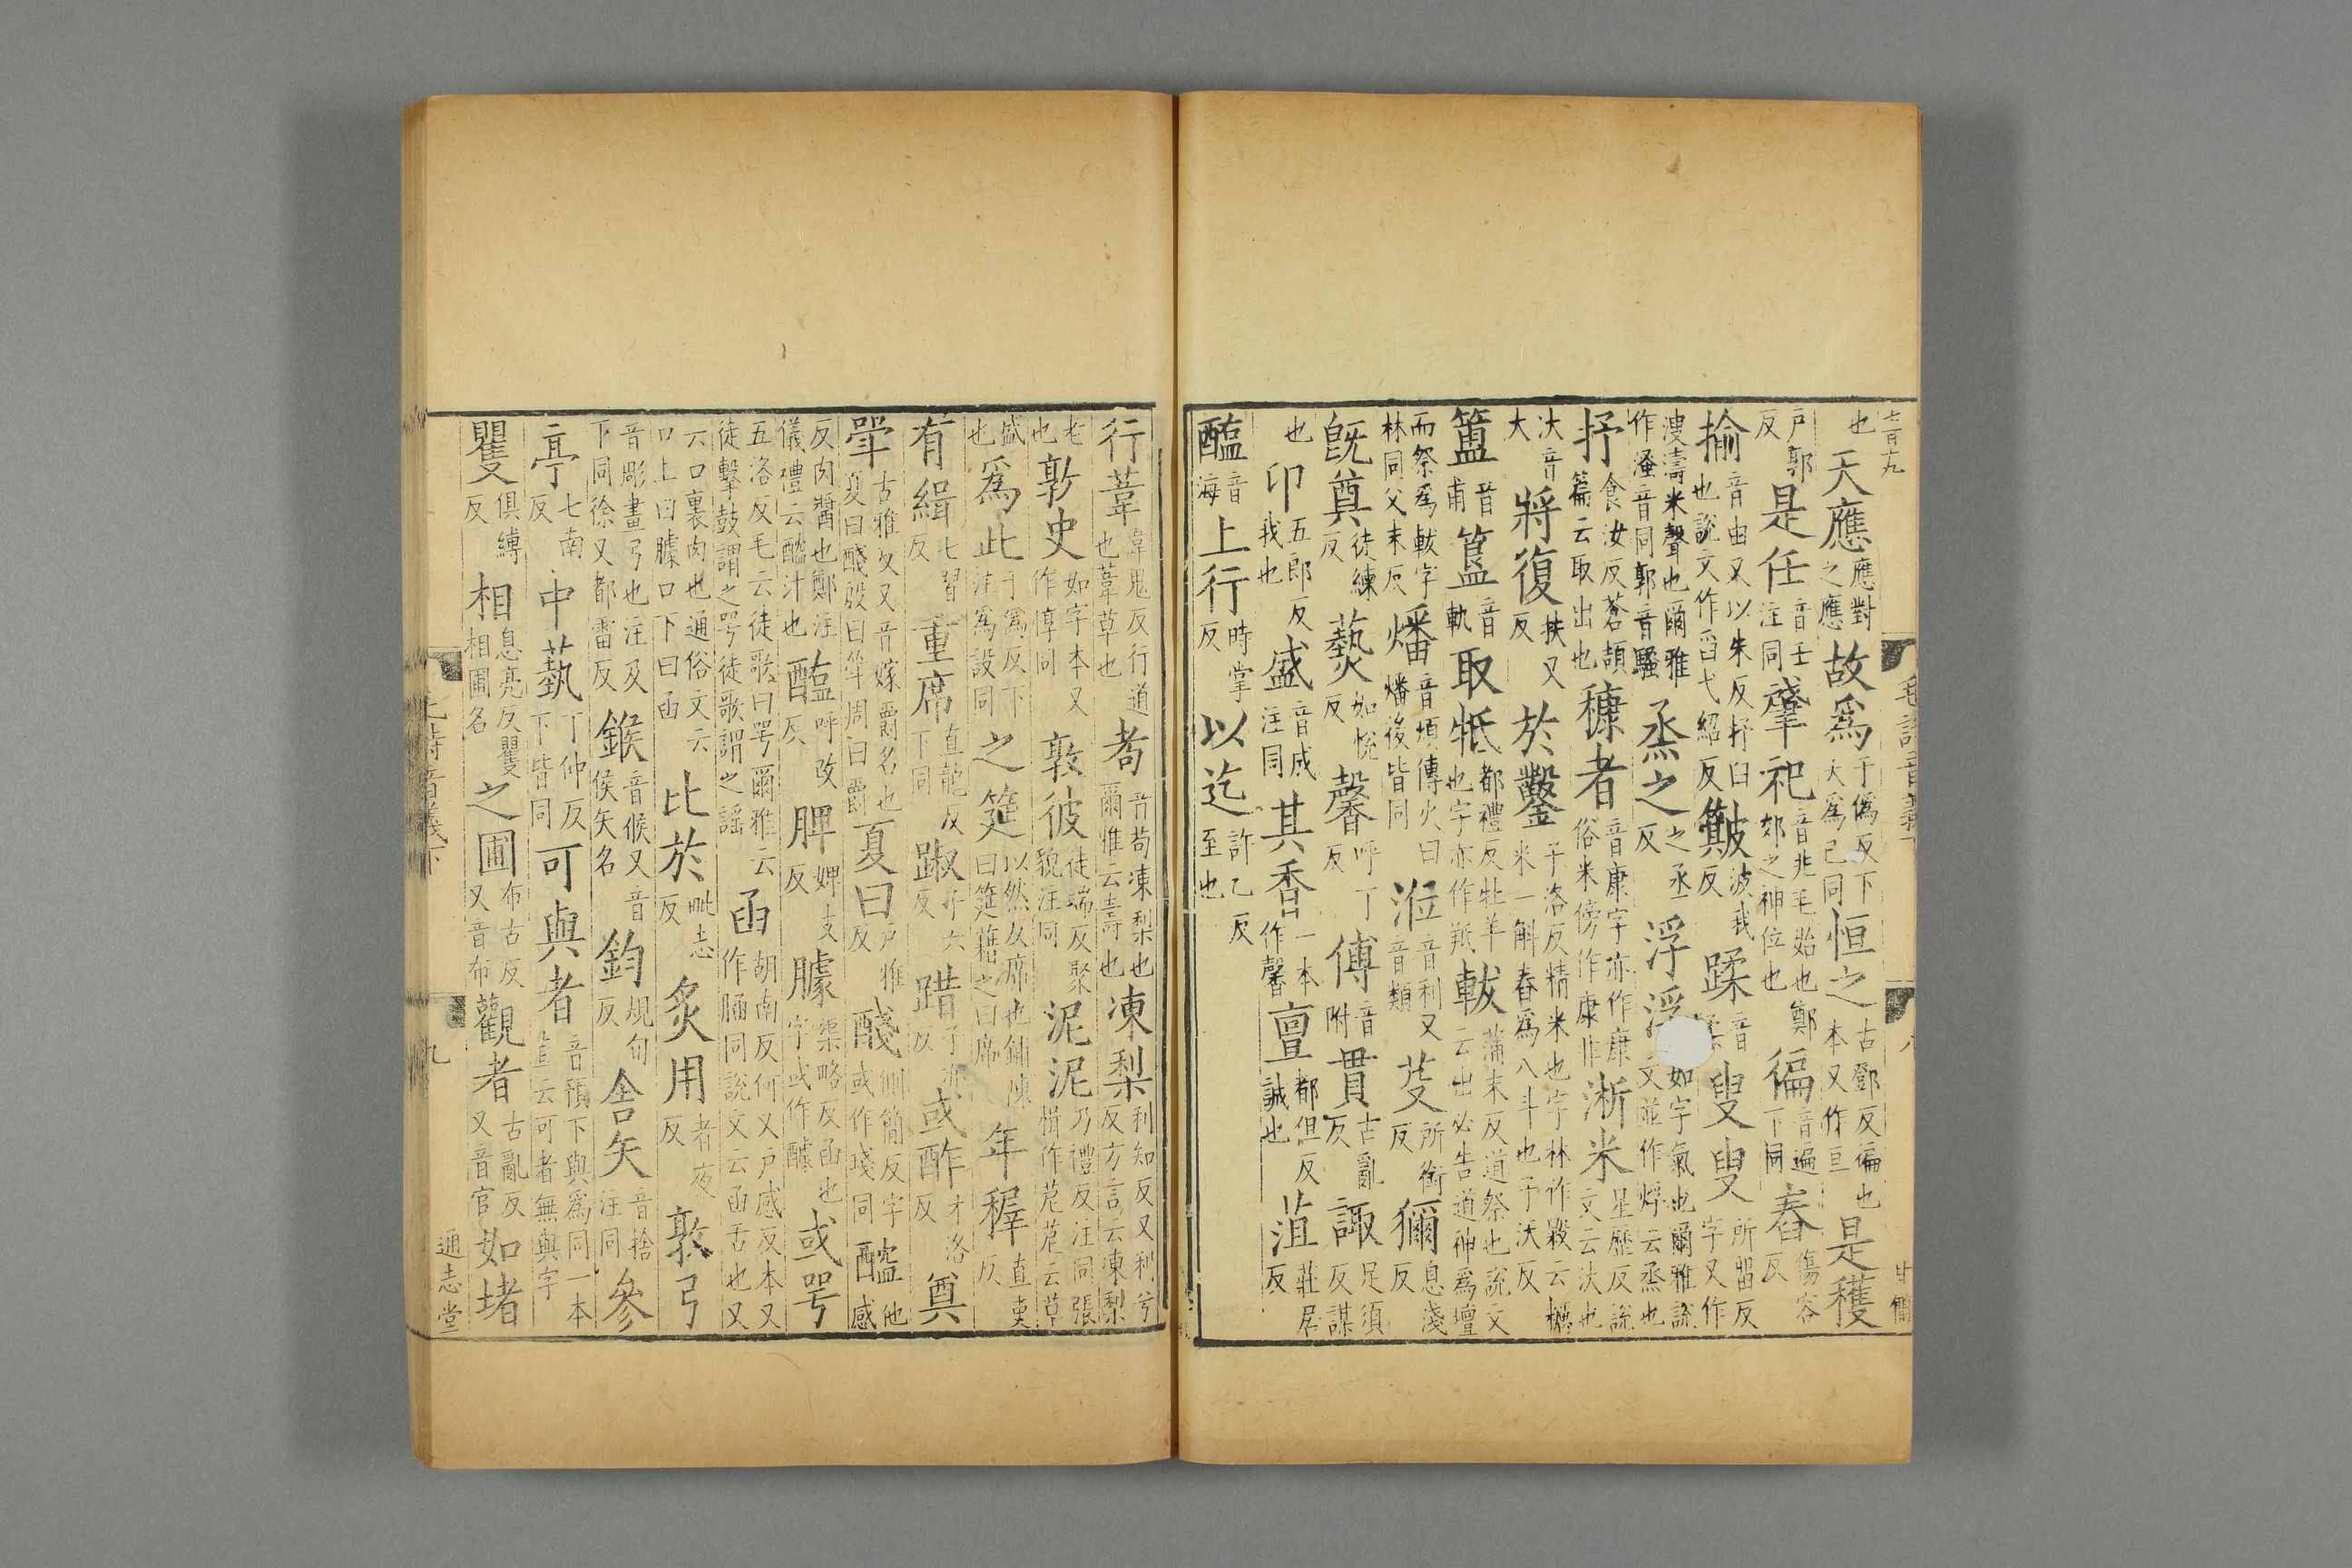 也天應應對之應故爲于僞反下大爲己同恒之古鄧反徧也本又作亘是穫
户郭反是任音壬注同肇祀音兆毛始也鄭郊之神位也徧音遍下同舂傷容反
揄音由又以朱反抒臼也説文作舀弋紹反簸波我反蹂音叟叟所留反字又作
溲濤米聲也爾雅作溞音同郭音騷烝之之丞反浮浮如字氣也爾雅説文並作烰云烝也
抒食汝反蒼頡篇云取出也穅者音康字亦作康俗米傍作康非淅米星歷反説文云汏也
汏音大將復扶又反於鑿子洛反精米也字林作毇云糲米一斛舂爲八斗也子沃反
簠音甫簋音軌取羝都禮反牡羊也字亦作羝軷蒲末反道祭也説文云出必告道神爲壇
而祭爲軷字林同父末反燔音煩傅火曰燔後皆同涖音利又音類芟所銜反獮息淺反
旣奠徒練反爇如悦反馨呼丁反傅音附貫古亂反諏足須反謀
也卬五郎反我也盛音成注同其香一本作馨亶都但反誠也菹莊居反
醢音海上行時掌反以迄許乙反至也
行葦韋鬼反行道也葦草也耇音苟凍梨也爾雅云壽也凍梨利知反又利兮反方言云凍梨
老也敦史如字本又作惇同敦彼徒端反聚貌注同泥泥乃禮反注同張楫作苨苨云草
盛也爲此于僞反下注爲設同之筵以然反席也鋪陳曰筵藉之曰席年稺直吏反
有緝七習反重席直龍反下同踧子六反踖子亦反或酢才洛反奠
斝古雅反又音嫁爵名也夏曰醆殷曰斝周曰爵夏曰户雅反醆側簡反字或作琖同醓他感
反肉醬也鄭注儀禮云醓汁也醢呼改反脾婢支反臄渠略反函也字或作醵或咢
五洛反毛云徒歌曰咢爾雅云徒擊鼓謂之咢徒歌謂之謡函胡南反何又户感反本又作腼同説文云函舌也又
云口裏肉也通俗文云口上曰臄口下曰函比於毗志反炙用者夜反敦弓
音彫畫弓也注及下同徐又都雷反鍭音候又音侯矢名鈞規旬反舍矢音捨注同參
亭七南反中蓺丁仲反下皆同可與者音預下與爲同一本直云可者無與字
矍俱縛反相息亮反矍相圃名之圃布古反又音布觀者古亂反又音官如堵
毛詩音義下
八
毛詩音義下
九
通志堂